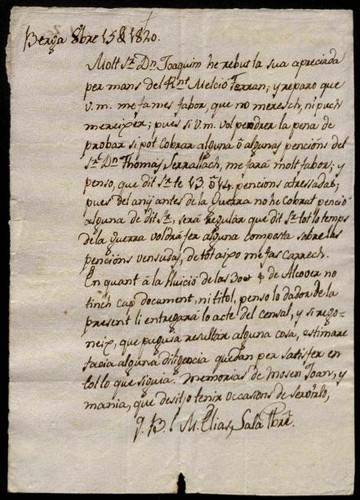 Berga 8bre 15 & 1820.
Molt Sr. Dn. Joaquim he rebut la sua apreciada
per mans del Rnt. Melció Ferran; y reparo que
v.m. me fa mes fabor, que no meresch, ni puch
mereixer; pues si V.M. vol pendrer la pena de
probar si pot cobrar alguna ó algunas pencións del
Sr. Dn. Thomas Serrallach, me fará molt fabor; y
penso, que dit Sr. te 13. ó 14. pencions atressadas;
pues del anÿ antes de la Guerra no he cobrat penció
alguna de dit Sr., será regular que dit Sr. tot lo temps
de la guerra voldrá fer alguna composta sobre las
pencións vensudas, de tot aixo me fas carrech.
En quant á la lluició de las 30 de Alcover no
tinch cap document, ni titol, penso lo dador de la
present li entregará lo acte del censal, y si rego-
neix, que puguia resultar alguna cosa, estimaré
facia alguna diligencia quedan per satisfer en
tot lo que siguia. Memorias de mosen Joan, y
mania, que desitjo tenir occasions de servirlo,
q. B. l. M. Elias, Sala Pbre.